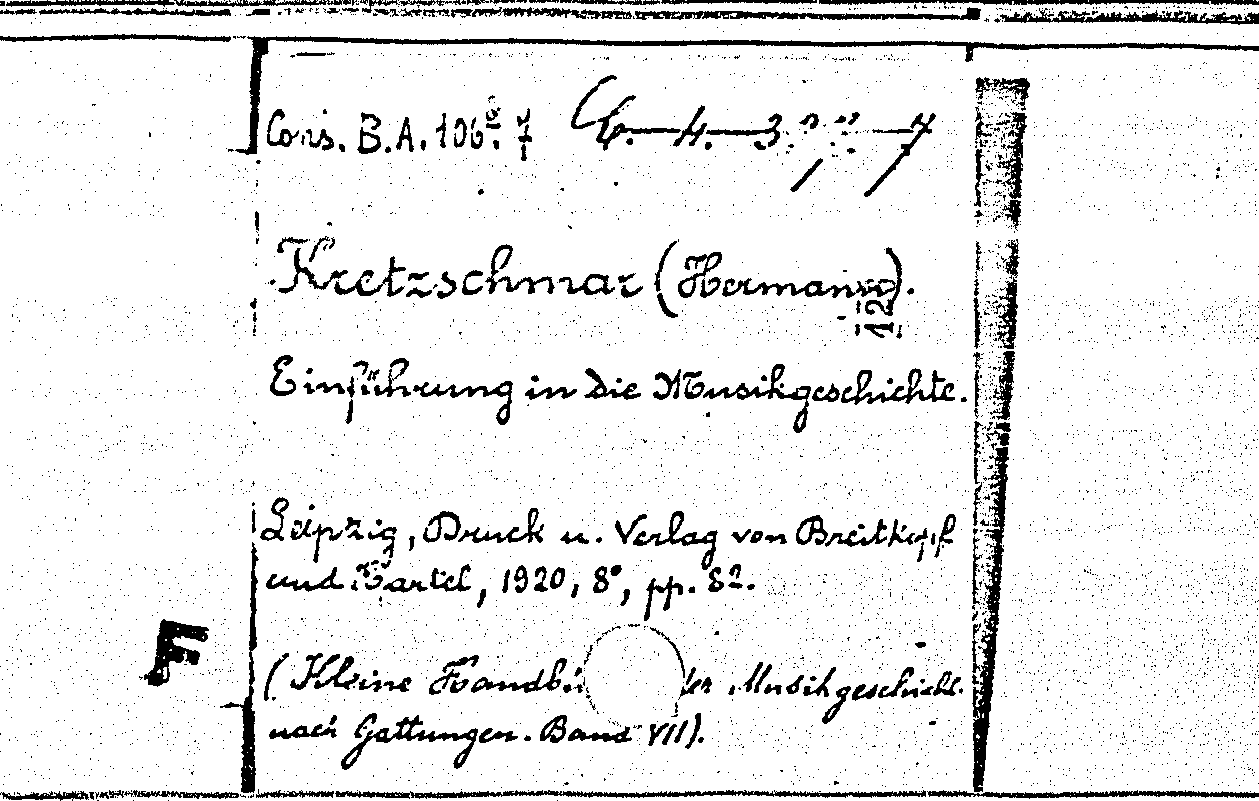 Cons. B.A. 106ª. 7
Kretzschmar (Hermann).
Einführung in die Musikgeschichte.
Leipzig, Druck u. Verlag von Breitkopf
und Härtel, 1920, 8°, pp. 82.
F
(Kleine Handbü der Musikgeschicht.
nach Gattungen. Band VII).